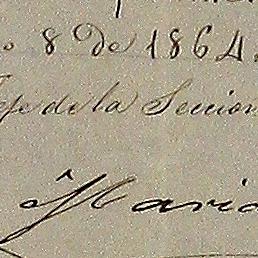 o 8 de 1864.
Jefe de la Seccion
Maria